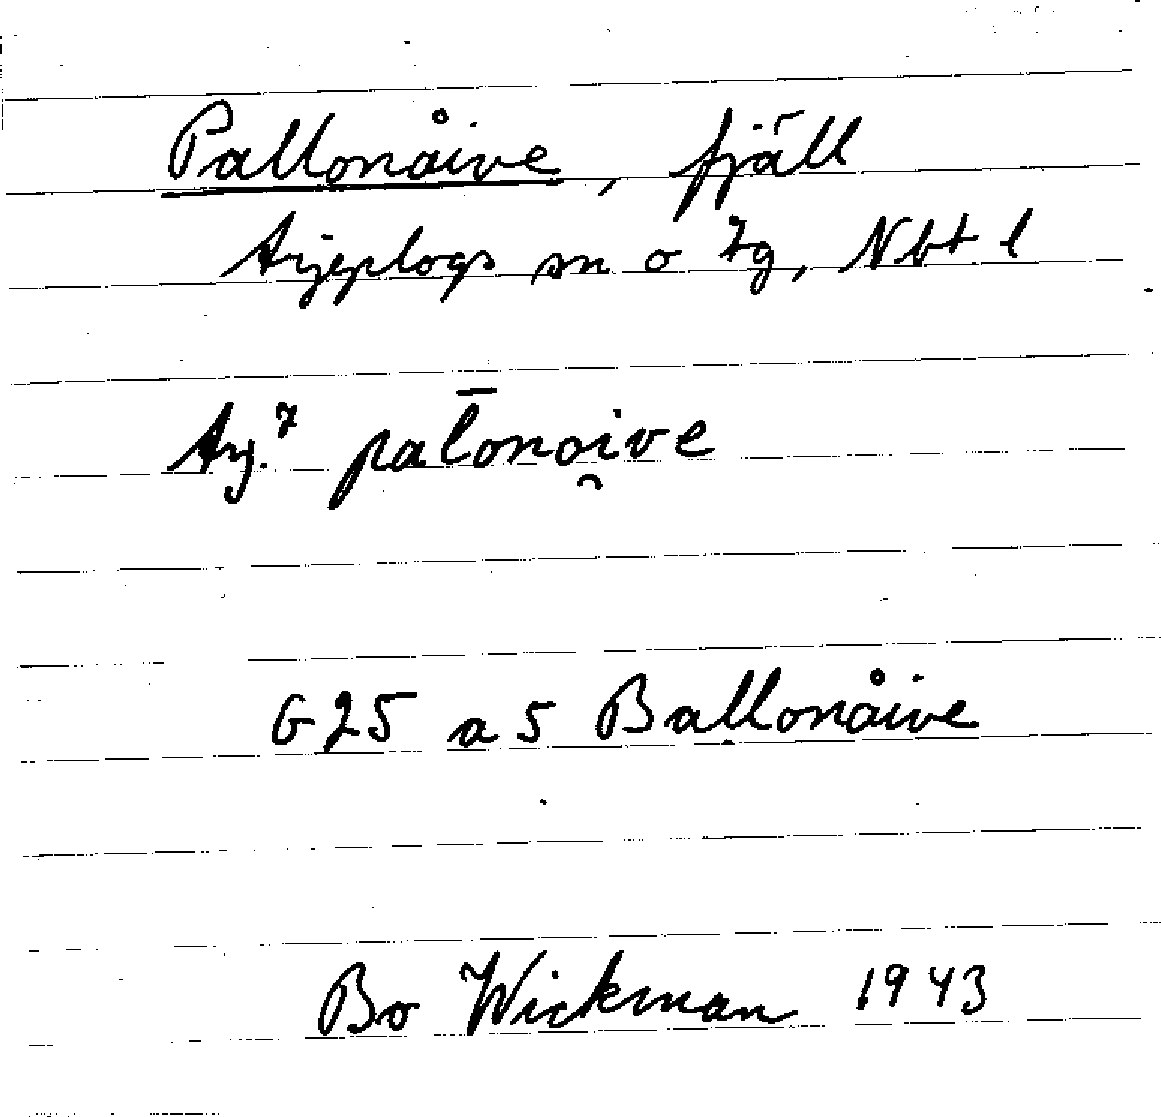 Pallonåive, fjäll
Arjeplogs sn o tg, Nbt l
Arj.⁷ pal̅ono̯ive
G25 a 5 Ballonåive
Bo Wickman 1943